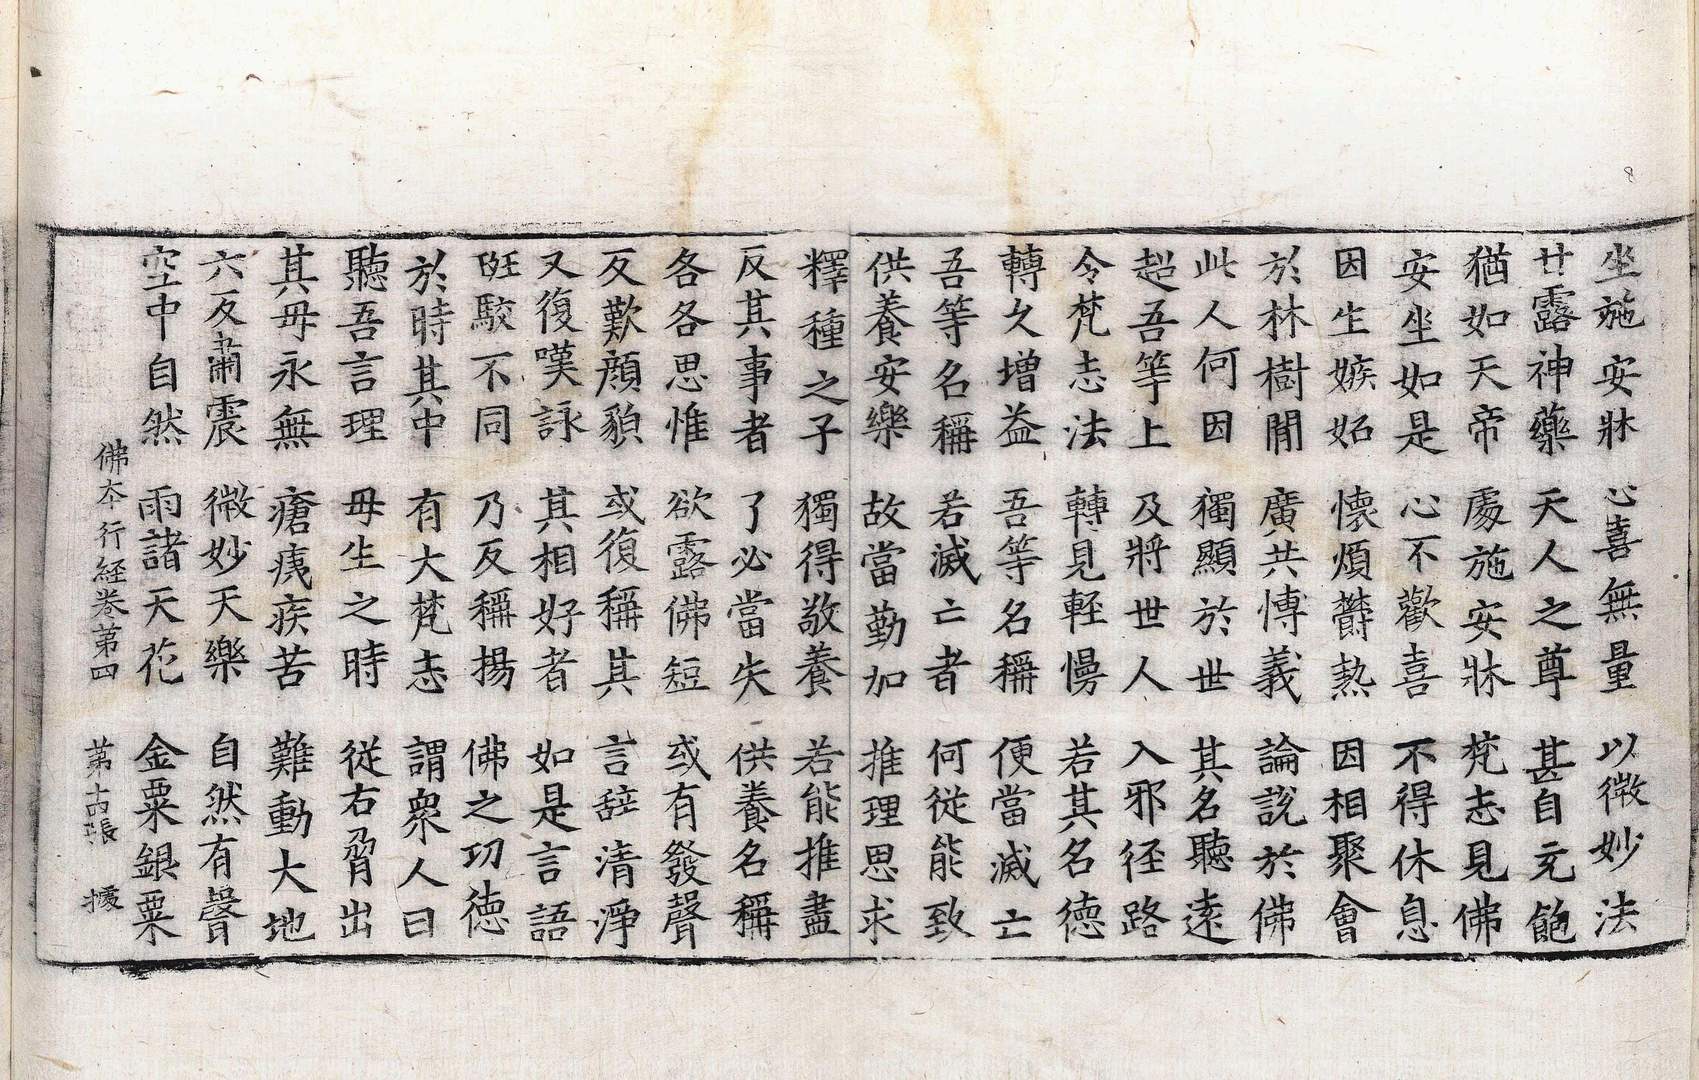 坐施安牀 心喜無量 以微妙法
甘露神藥 天人之尊 甚自充飽
猶如天帝 處施安牀 梵志見佛
安坐如是 心不歡喜 不得休息
因生嫉妬 懷煩欝熱 因相聚會
於林樹閒 廣共愽義 論說於佛
此人何因 獨顯於世 其名聽遠
超吾等上 及將世人 入邪徑路
令梵志法 轉見輕慢 若其名德
轉久增益 吾等名稱 便當滅亡
吾等名稱 若滅亡者 何從能致
供養安樂 故當勤加 推理思求
釋種之子 獨得敬養 若能推盡
反其事者 了必當失 供養名稱
各各思惟 欲露佛短 或有發聲
反歎顔貌 或復稱其 言辝清淨
又復嘆詠 其相好者 如是言語
斑駮不同 乃反稱揚 佛之功德
於時其中 有大梵志 謂衆人曰
聽吾言理 毋生之時 從右脅出
其毋永無 瘡痍疾苦 難動大地
六反肅震 微妙天樂 自然有聲
空中自然 雨諸天花 金粟銀粟
佛本行経卷第四 第十張 據
8